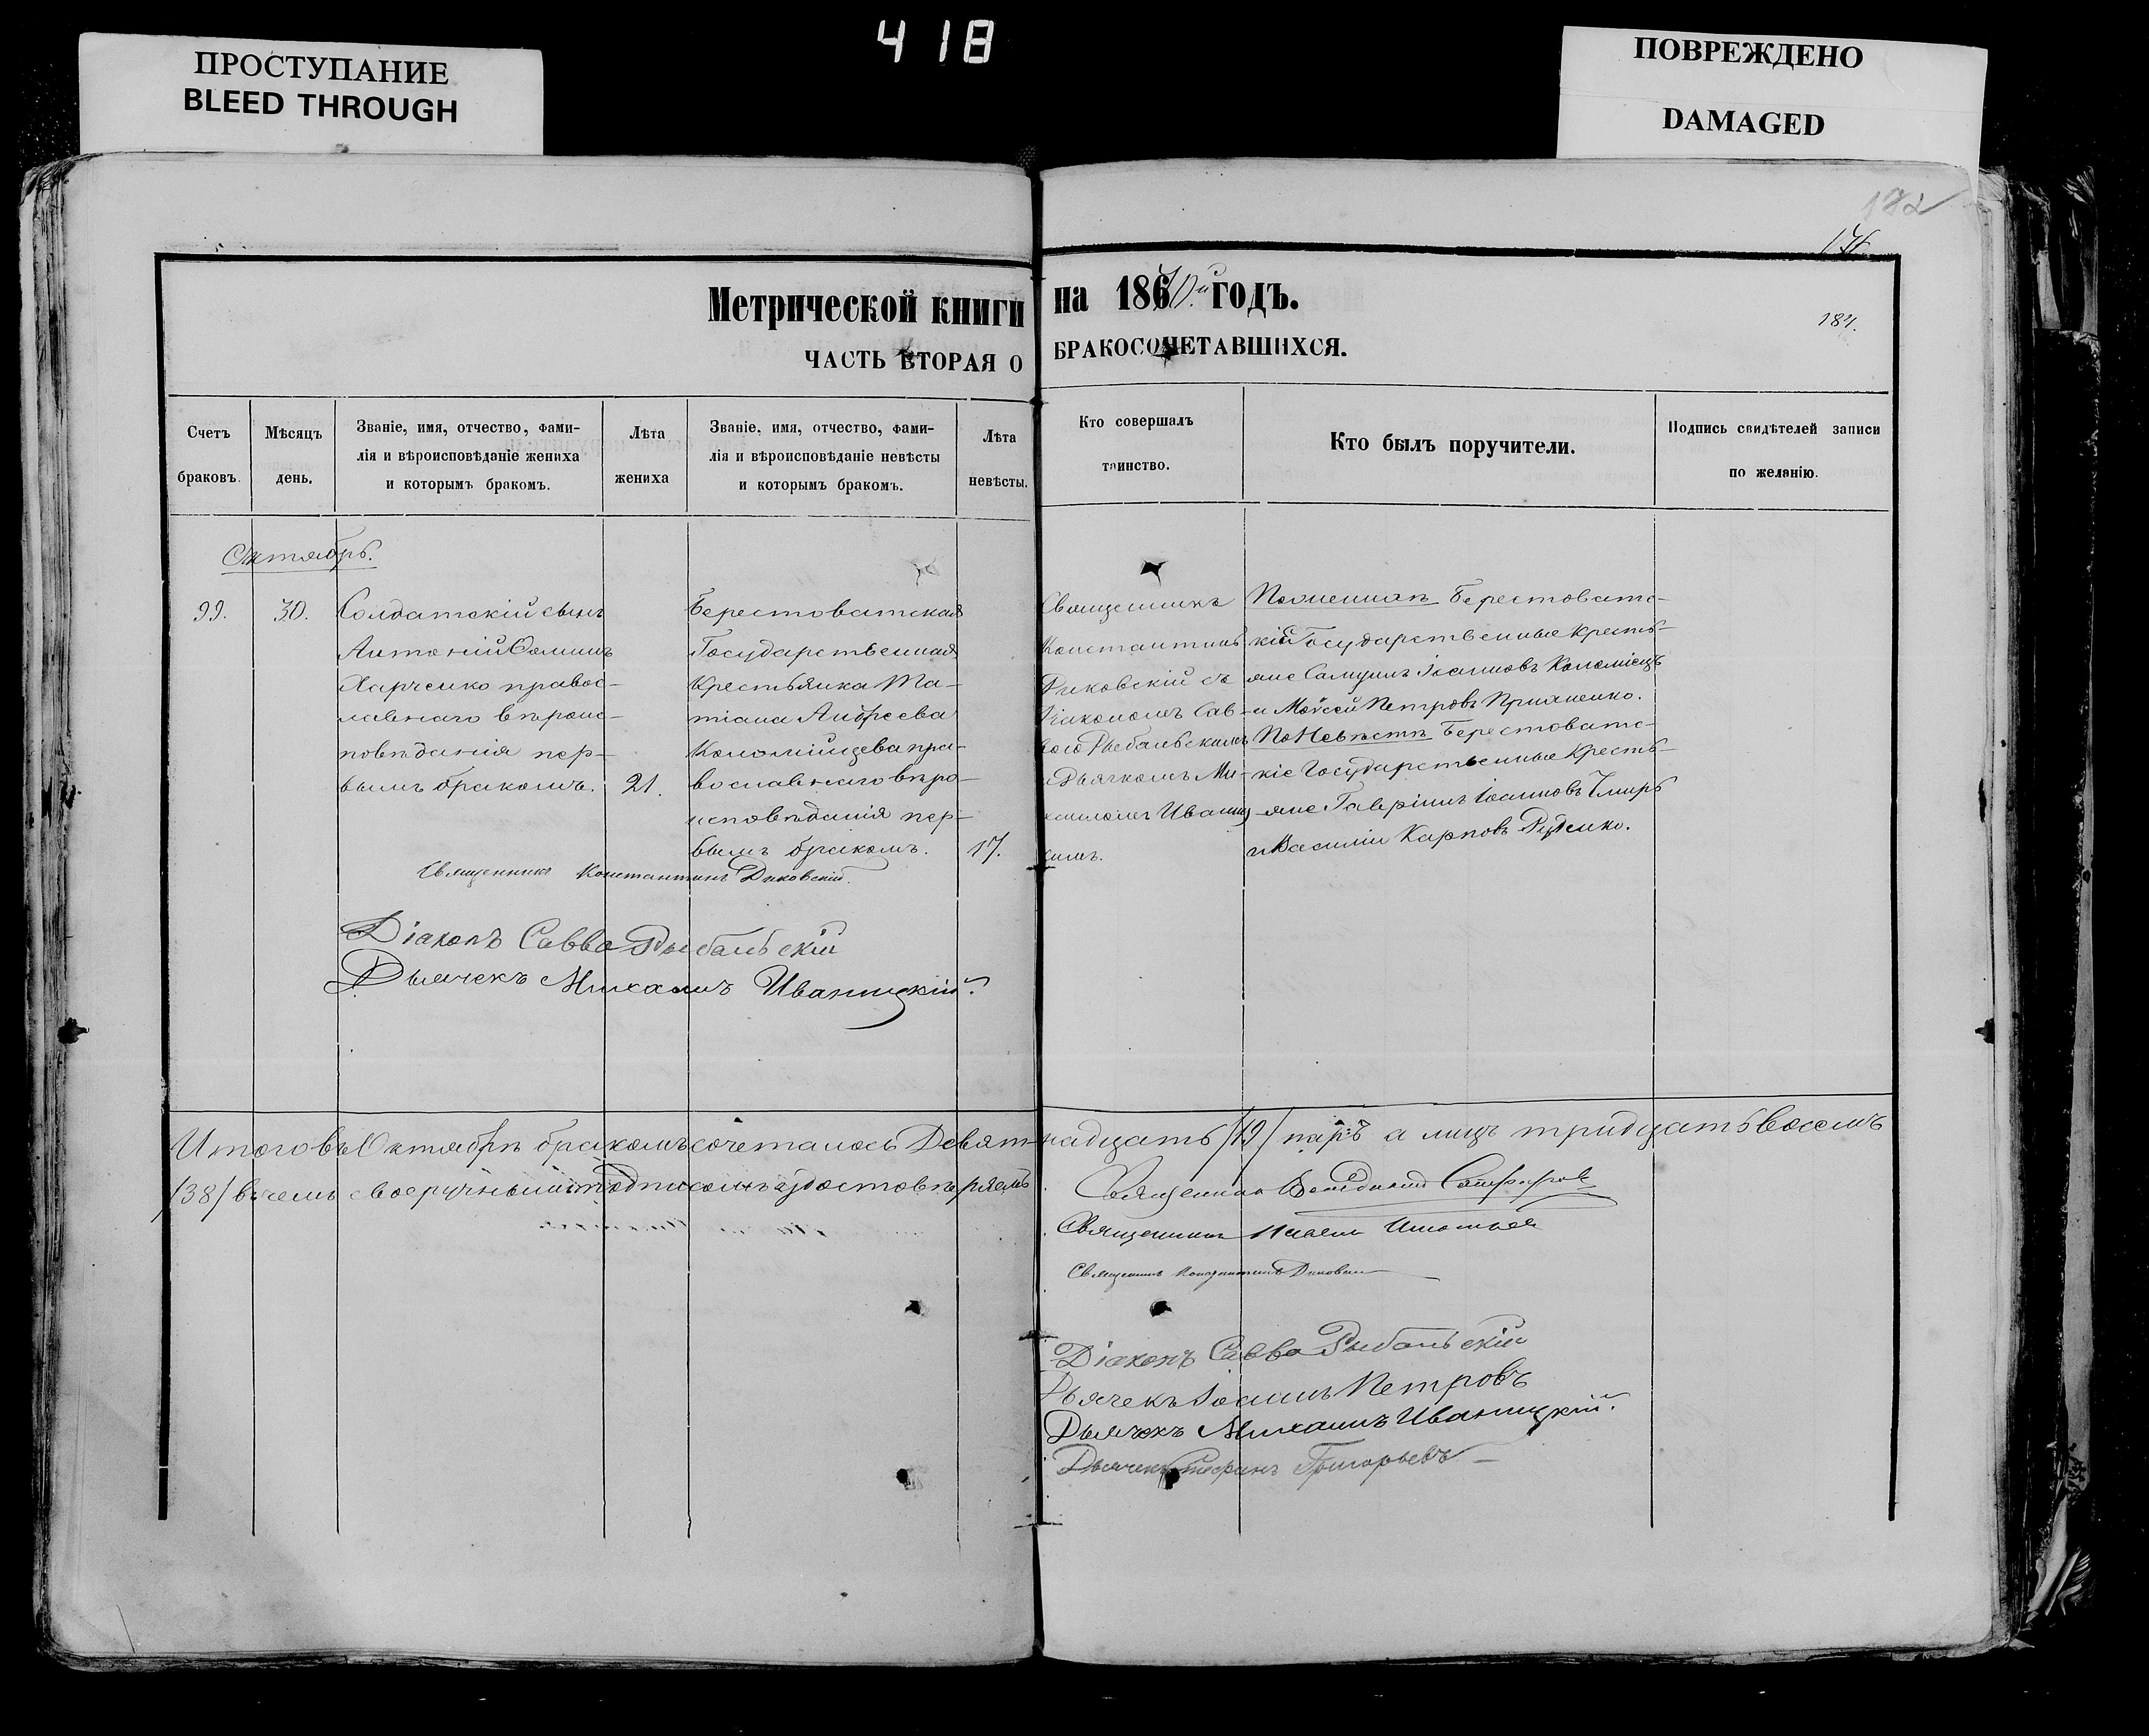 418
ПРОСТУПАНИЕ
BLEED THROUGH
ПОВРЕЖДЕНО
DAMAGED
182
184.
Метрической книги на 1870.й годъ.
ЧАСТЬ ВТОРАЯ О БРАКОСОЧЕТАВШИХСЯ.
Счетъ браковъ.
Мѣсяцъ день.
Званіе, имя, отчество, фами-
лія и вѣроисповѣданіе жениха
и которымъ бракомъ.
Лѣта жениха
Званіе, имя, отчество, фами-
лія и вѣроисповѣданіе невѣсты
и которымъ бракомъ.
Лѣта невѣсты.
Кто совершалъ
таинство.
Кто былъ поручители.
Подпись свидѣтелей записи
по желанію.
Октябрь.
99.
30.
Солдатскій сынъ
Антоній Ѳоминъ
Харченко правос-
лавнаго вѣроис-
повѣданія пер-
вымъ бракомъ.
21.
Берестоватская
Государственная
Крестьянка Та-
тіана Андреева
Коломійцева пра-
вославнаго вѣро-
исповѣданія пер-
вымъ бракомъ.
17.
Священникъ
Константинъ
Диковскій съ
Діакономъ Сав-
вою Рыбальскимъ
и Дьячкомъ Ми-
хаиломъ Иваниц-
кимъ.
По женихѣ Берестоватс-
кій Государственные Кресть-
яне Самуилъ Іоанновъ Коломіецъ
и Мойсей Петровъ
По Невѣстѣ Берестоватс-
кіе Государственные Кресть-
яне Гавріилъ Іоанновъ
и Василій Карповъ Руденко.
Священникъ Константинъ Диковскій.
Діаконъ Савва Рыбальскій
Дьячекъ Михаилъ Иваницкій.
Итого въ Октябрѣ бракомъ сочеталось Девят-надцать /19/ паръ а лицъ тридцать восемь
/38/ въ чемъ своеручнымъ подписомъ удостовѣряемъ
Священникъ
Священникъ
Священникъ Константинъ Диковскій
Діаконъ Савва Рыбальскій
Дьячекъ Іоаннъ Петровъ
Дьячекъ Михаилъ Иваницкій.
Дьячекъ Григорьевъ